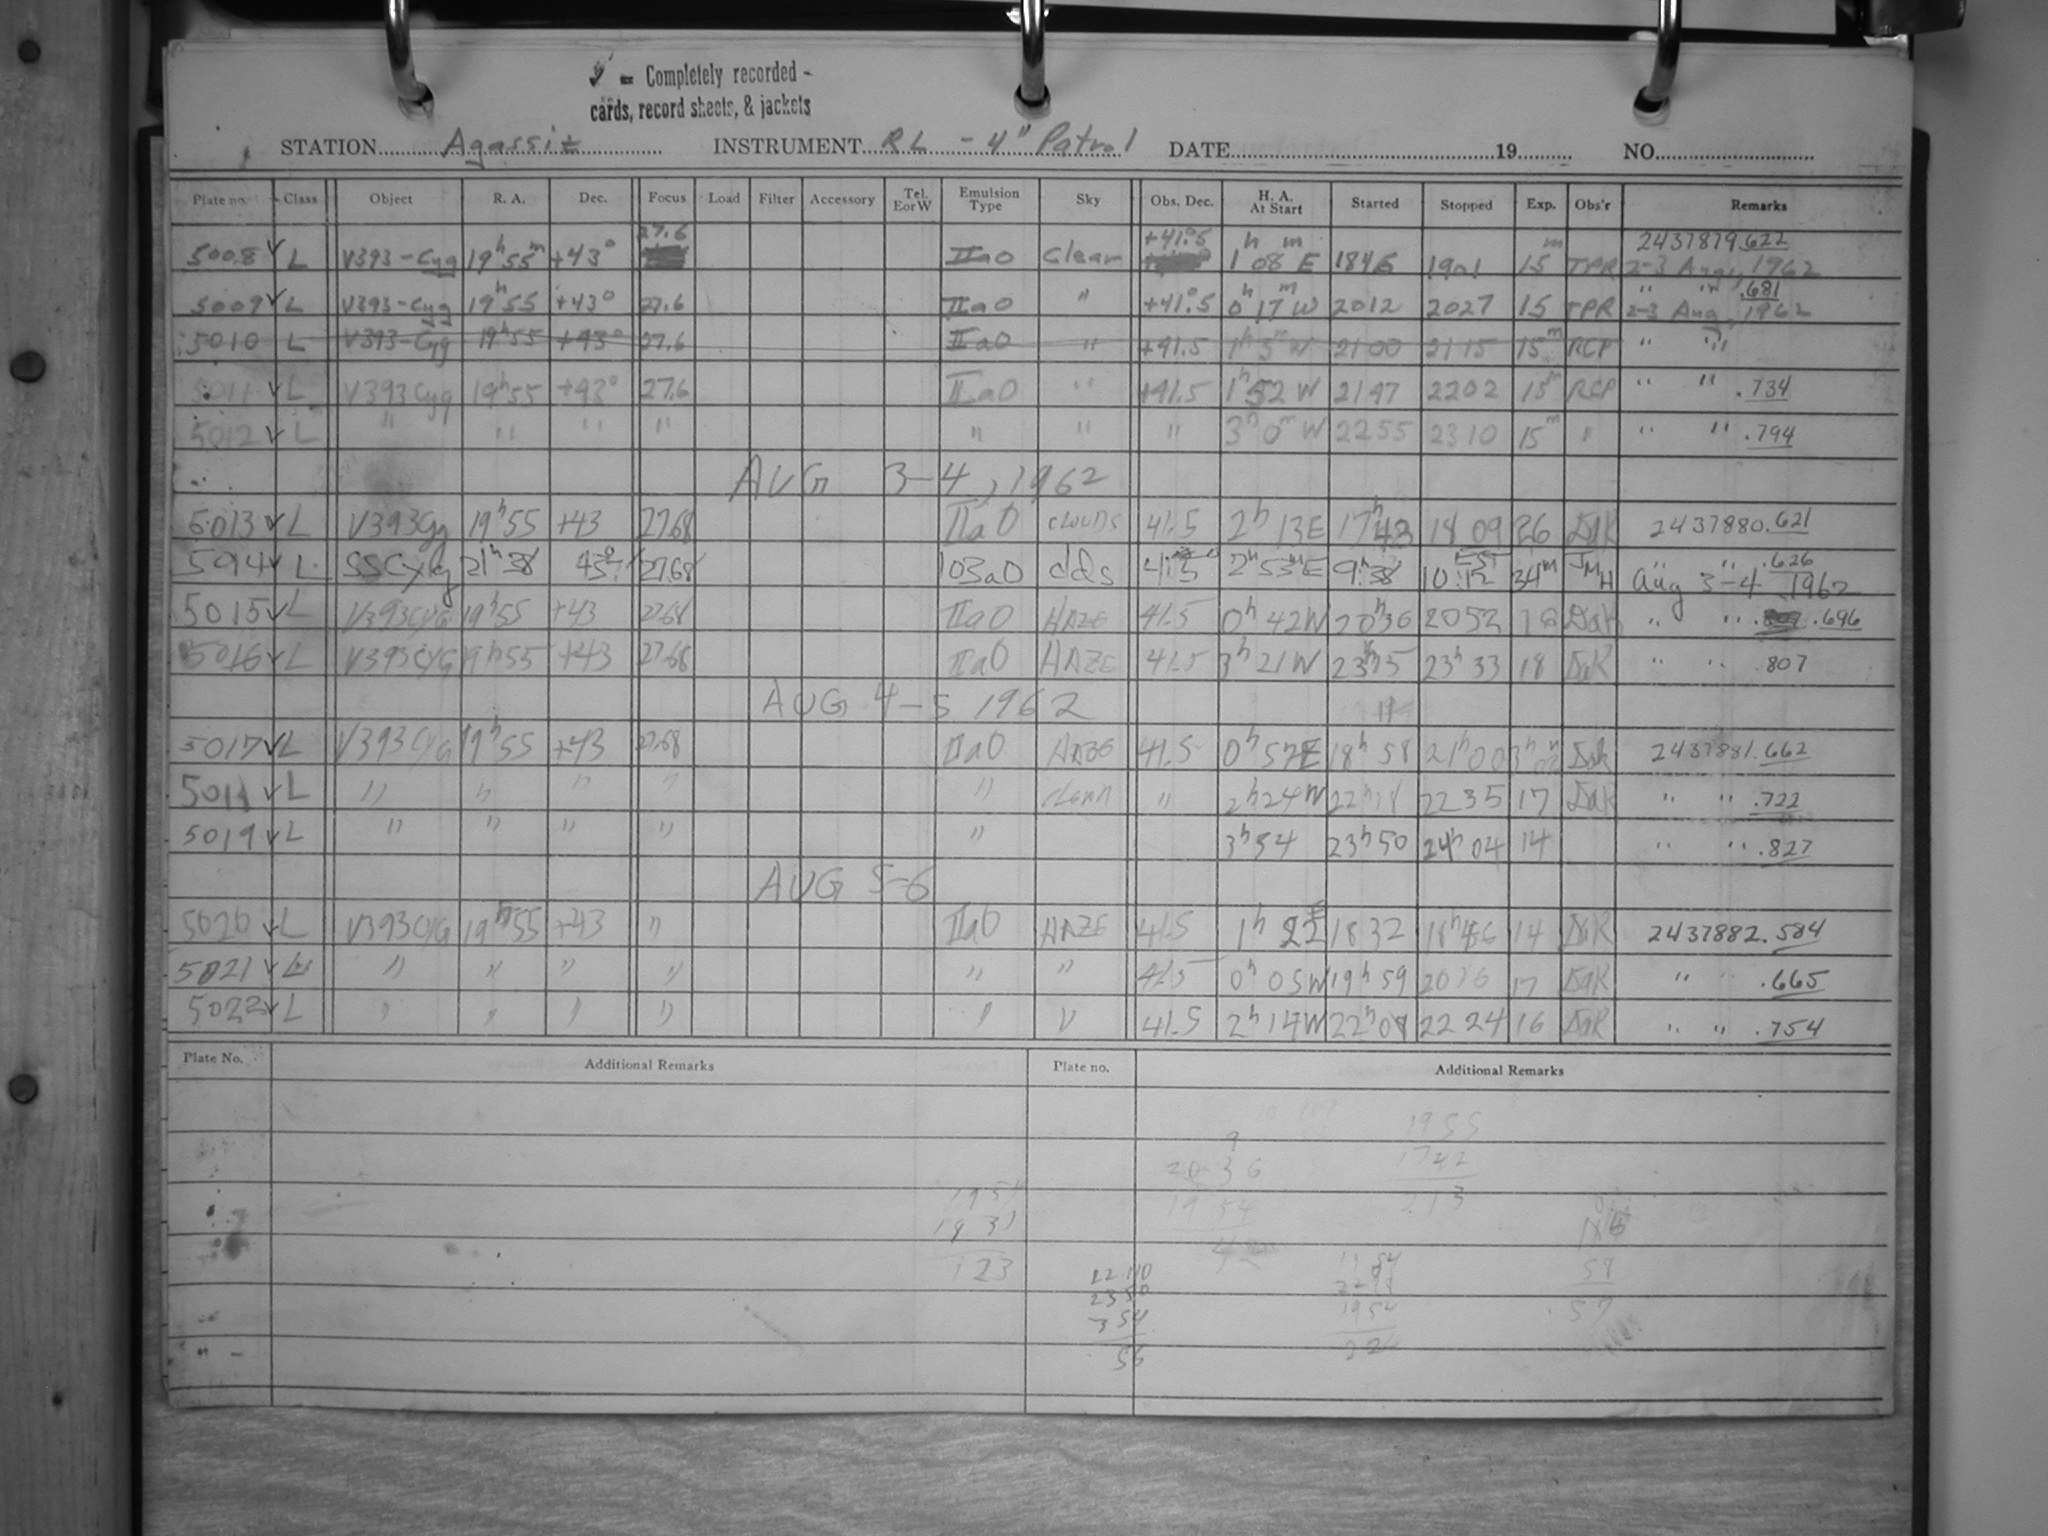 ✓ = Completely recorded -
cards, record sheets, & jackets
STATION Agassiz INSTRUMENT RL - 4" Patrol DATE 19 NO.
Plate no. Class Object R. A. Dec. Focus Load Filter Accessory Tel. E or W Emulsion Type Sky Obs. Dec. H. A. At Start Started Stopped Exp. Obs'r Remarks
5008 ✓ L V393-Cyg 19h 55m +43° 27.6 IIa0 clear +41.°5 1h 08m E 1846 1901 15m TPR 2437879.622 2-3 Aug, 1962
5009 ✓ L V393-Cyg 19h55 +43° 27.6 IIa0 " +41.°5 0h 17m W 2012 2027 15 TPR " " .681 2-3 Aug, 1962
5010 L V393-Cyg 19h55 +43° 27.6 IIa0 " +41.5 1h 5m W 2100 2115 15m RCP " "
5011 ✓ L V393Cyg 19h55 +43° 27.6 IIa0 " +41.5 1h52 W 2147 2202 15m RCP " " .734
5012 ✓ L " " " " " " " 3h 0m W 2255 2310 15m " " " .794
AUG 3-4, 1962
5013 ✓ L V393Cyg 19h55 +43 27.68 IIa0 CLOUDS 41.5 2h 13E 17h43 18 09 26 DaK 2437880.621
5014 ✓ L SSCyg 21h38 43° 27.68 103a0 clds 41.5 2h53mE 9:38 10:12 34m JMH " " .626 Aug 3-4 1962
5015 ✓ L V393CYG 19h55 +43 27.68 IIa0 HAZE 41.5 0h 42W 20h36 2052 16 DaK " " .696
5016 ✓ L V393CYG 19h55 +43 27.68 IIa0 HAZE 41.5 3h 21W 23h15 23h 33 18 DaK " " .807
AUG 4-5 1962
5017 ✓ L V393CYG 19h55 +43 27.68 IIa0 HAZE 41.5 0h 57E 18h 58 21h 00 DaK 2437881.662
5018 ✓ L " " " " " clear " 2h24W 22h18 2235 17 DaK " " .722
5019 ✓ L " " " " " 3h54 23h50 24h 04 14 " " .827
AUG 5-6
5020 ✓ L V393CYG 19h55 +43 " IIa0 HAZE 41.5 1h 22E 1832 18h46 14 DaK 2437882.584
5021 ✓ L " " " " " " 41.5 0h 05W 19h 59 2016 17 DaK " " .665
5022 ✓ L " " " " " " 41.5 2h 14W 22h08 22 24 16 DaK " " .754
Plate No. Additional Remarks Plate no. Additional Remarks
1955
20 36 1742
1954 213
1931
123
2350
354
56
1954
57